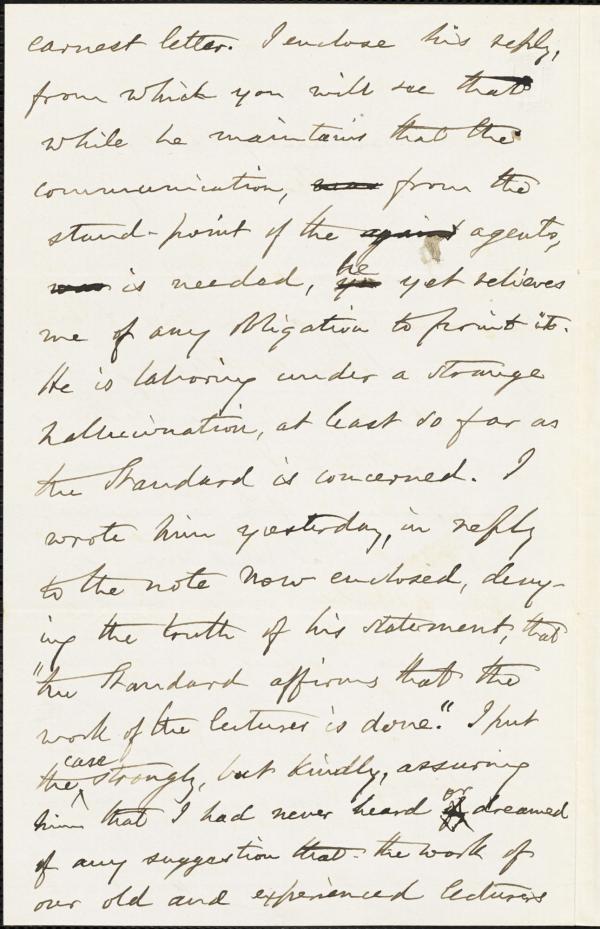 earnest letter. I enclose his reply,
from which you will see that
while he maintains that the
communication, was from the
stand-point of the against agents,
was is needed, he yet relieves
me of any obligation to print it.
He is laboring under a strange
hallucination, at least so far as
the Standard is concerned. I
wrote him yesterday, in reply
to the note now enclosed, deny-
ing the truth of his statement, that
"the Standard affirms that the
work of the lectures is done." I put
the case strongly, but kindly, assuring
him that I had never heard or dreamed
of any suggestion that the work of
our old and experienced lecturers